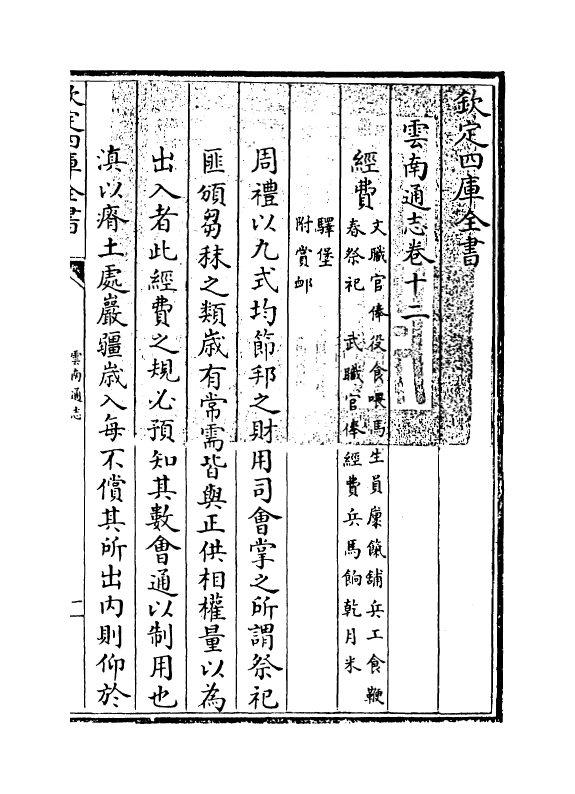 欽定四庫全書
雲南通志卷十二
經費
文職官俸役食喂馬生員廩餼舖兵工食鞭
春祭祀　武職官俸經費兵馬餉乾月米
驛堡
附賞䘏
周禮以九式均節邦之財用司會掌之所謂祭祀
匪頒芻秣之類歲有常需皆與正供相權量以為
出入者此經費之規必預知其數會通以制用也
滇以瘠土處巖疆歲入每不償其所出内則仰於
欽定四庫全書
雲南通志